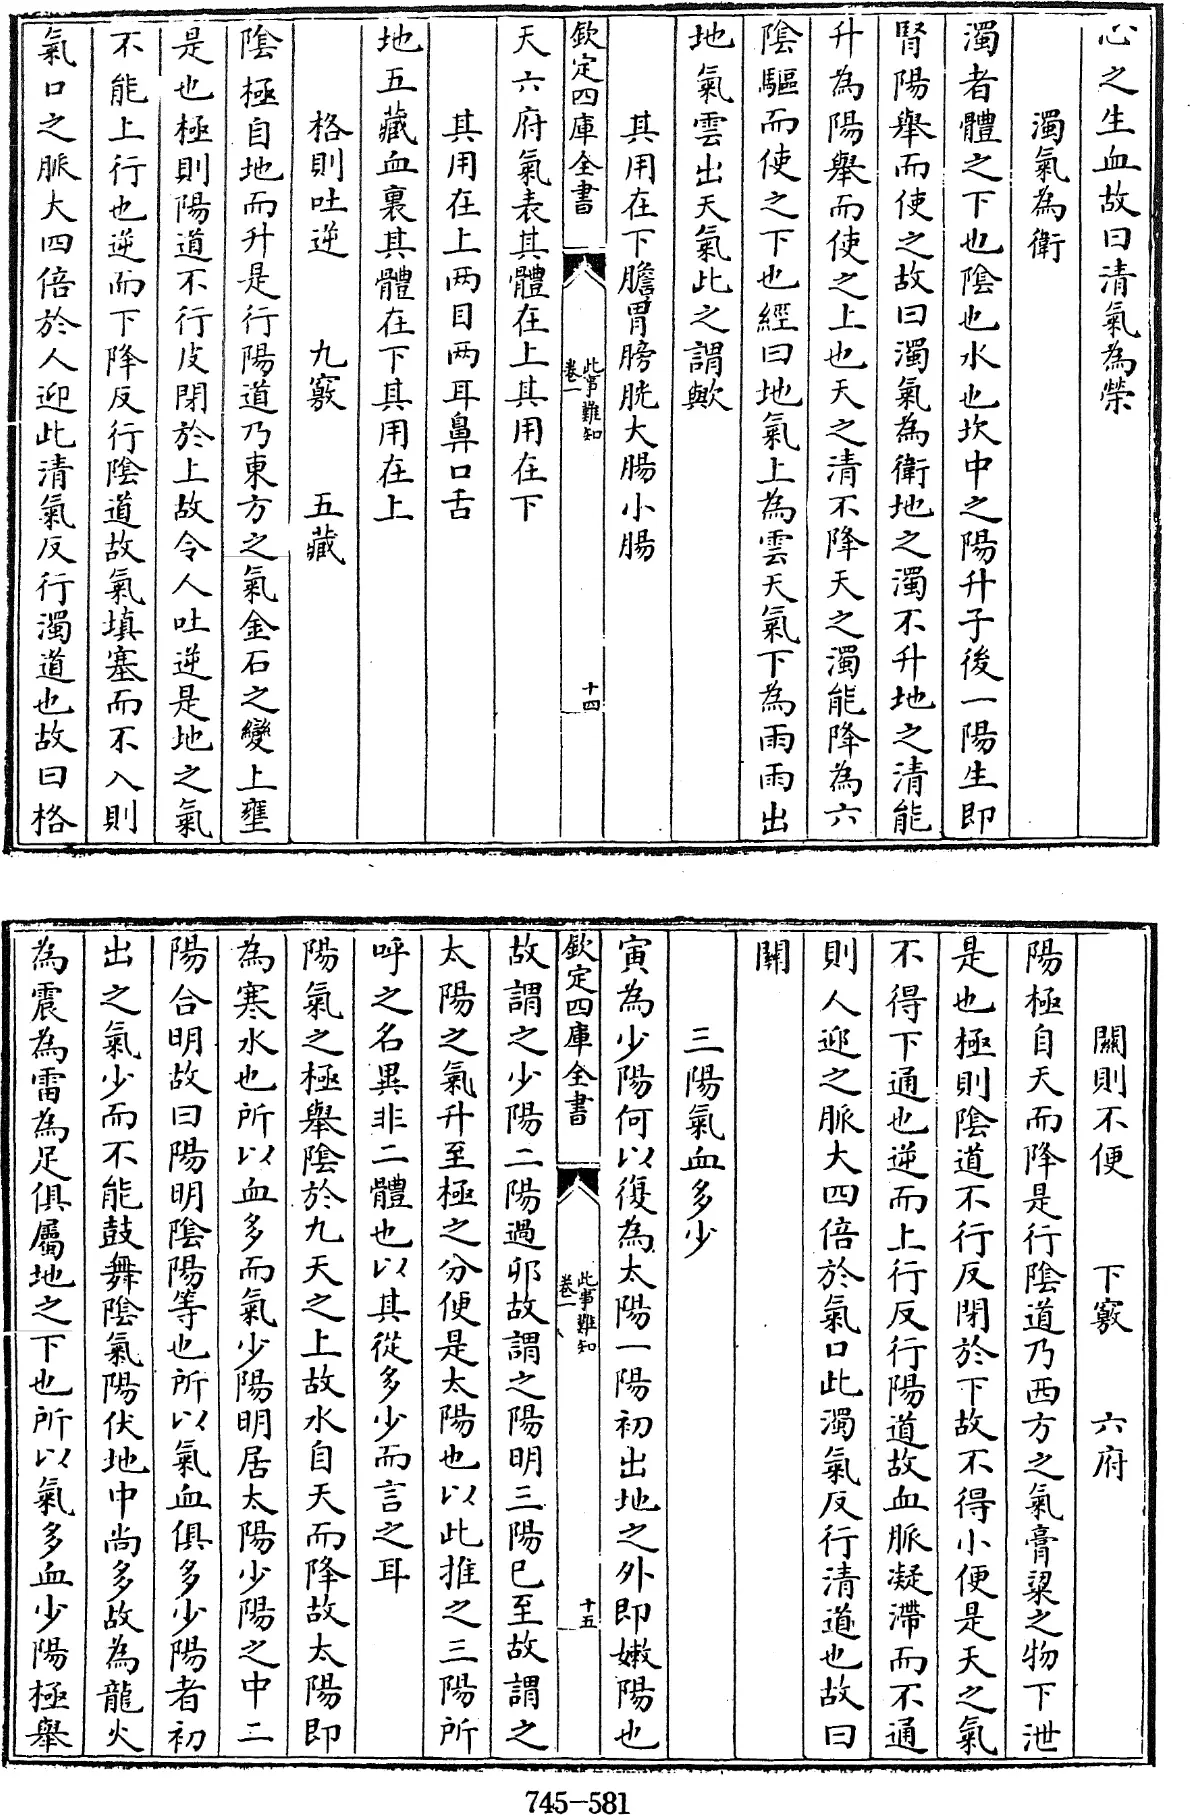 心之生血故曰清氣為榮
濁氣為衛
濁者體之下也陰也水也坎中之陽升子後一陽生即
腎陽舉而使之故曰濁氣為衛地之濁不升地之清能
升為陽舉而使之上也天之清不降天之濁能降為六
陰驅而使之下也經曰地氣上為雲天氣下為雨雨出
地氣雲出天氣此之謂歟
其用在下膽胃膀胱大腸小腸
欽定四庫全書 此事難知 卷一 十四
天六府氣表其體在上其用在下
其用在上兩目兩耳鼻口舌
地五藏血裏其體在下其用在上
格則吐逆 九竅 五藏
陰極自地而升是行陽道乃東方之氣金石之變上壅
是也極則陽道不行反閉於上故令人吐逆是地之氣
不能上行也逆而下降反行陰道故氣填塞而不入則
氣口之脈大四倍於人迎此清氣反行濁道也故曰格
關則不便 下竅 六府
陽極自天而降是行陰道乃西方之氣膏粱之物下泄
是也極則陰道不行反閉於下故不得小便是天之氣
不得下通也逆而上行反行陽道故血脈凝滯而不通
則人迎之脈大四倍於氣口此濁氣反行清道也故曰
關
三陽氣血多少
寅為少陽何以復為太陽一陽初出地之外即嫩陽也
欽定四庫全書 此事難知 卷一 十五
故謂之少陽二陽過卯故謂之陽明三陽巳至故謂之
太陽之氣升至極之分便是太陽也以此推之三陽所
呼之名異非二體也以其從多少而言之耳
陽氣之極舉陰於九天之上故水自天而降故太陽即
為寒水也所以血多而氣少陽明居太陽少陽之中二
陽合明故曰陽明陰陽等也所以氣血俱多少陽者初
出之氣少而不能鼓舞陰氣陽伏地中尚多故為龍火
為震為雷為足俱屬地之下也所以氣多血少陽極舉
745-581